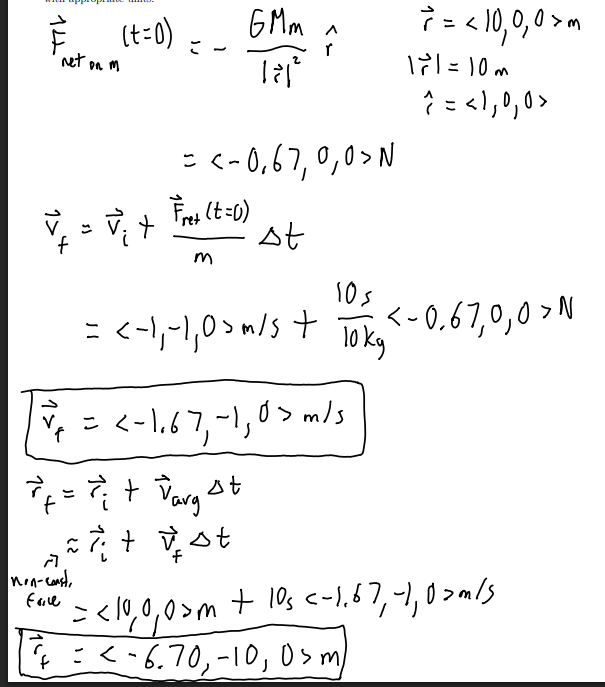 with appropriate units.
F⃗ net on m (t=0) = - GMm / |r⃗|² r̂
r⃗ = <10,0,0> m
|r⃗| = 10 m
r̂ = <1,0,0>
= <-0.67, 0, 0> N
v⃗_f = v⃗_i + F⃗_net (t=0) / m Δt
= <-1,-1,0> m/s + 10s / 10kg <-0.67,0,0> N
v⃗_f = <-1.67, -1, 0> m/s
r⃗_f = r⃗_i + v⃗_avg Δt
≈ r⃗_i + v⃗_f Δt
non-const. force
= <10,0,0>m + 10s <-1.67,-1,0>m/s
r⃗_f = <-6.70, -10, 0>m